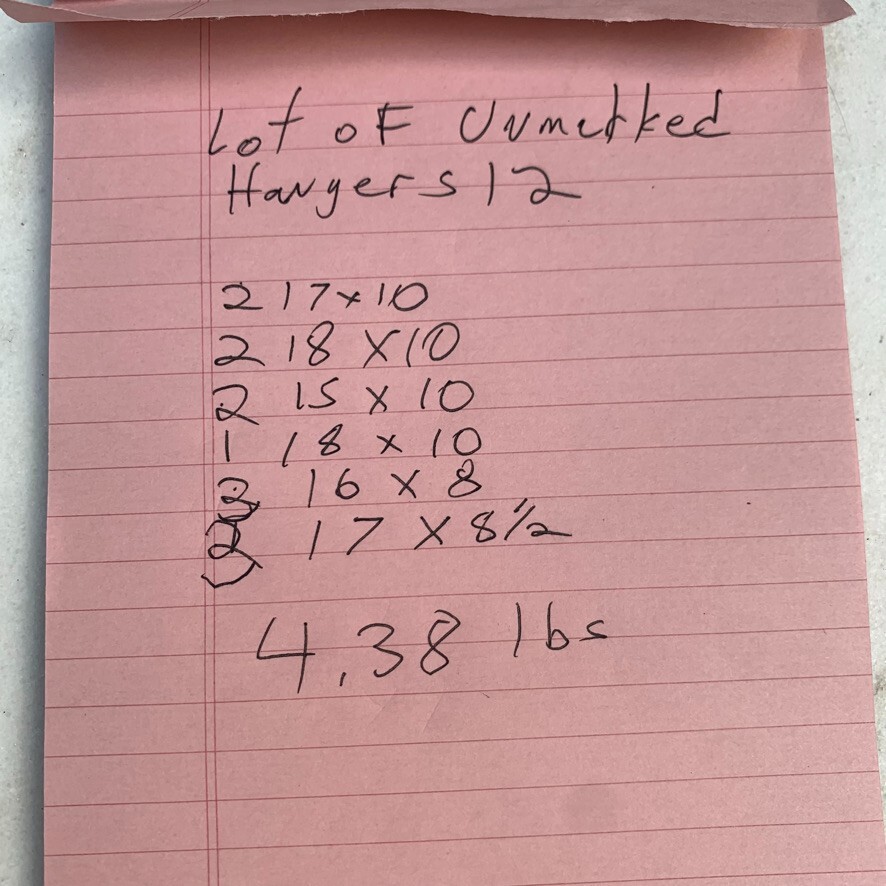 Lot oF Unmarked
Hangers 12
2 17 x 10
2 18 x 10
2 15 x 10
1 18 x 10
16 x 8
17 x 8 1/2
4.38 lbs